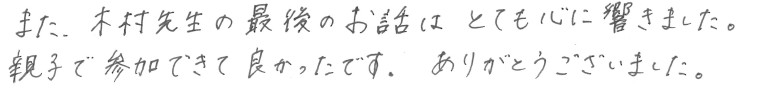 また、木村先生の最後のお話は とても心に響きました。
親子で参加できて良かったです. ありがとうございました。